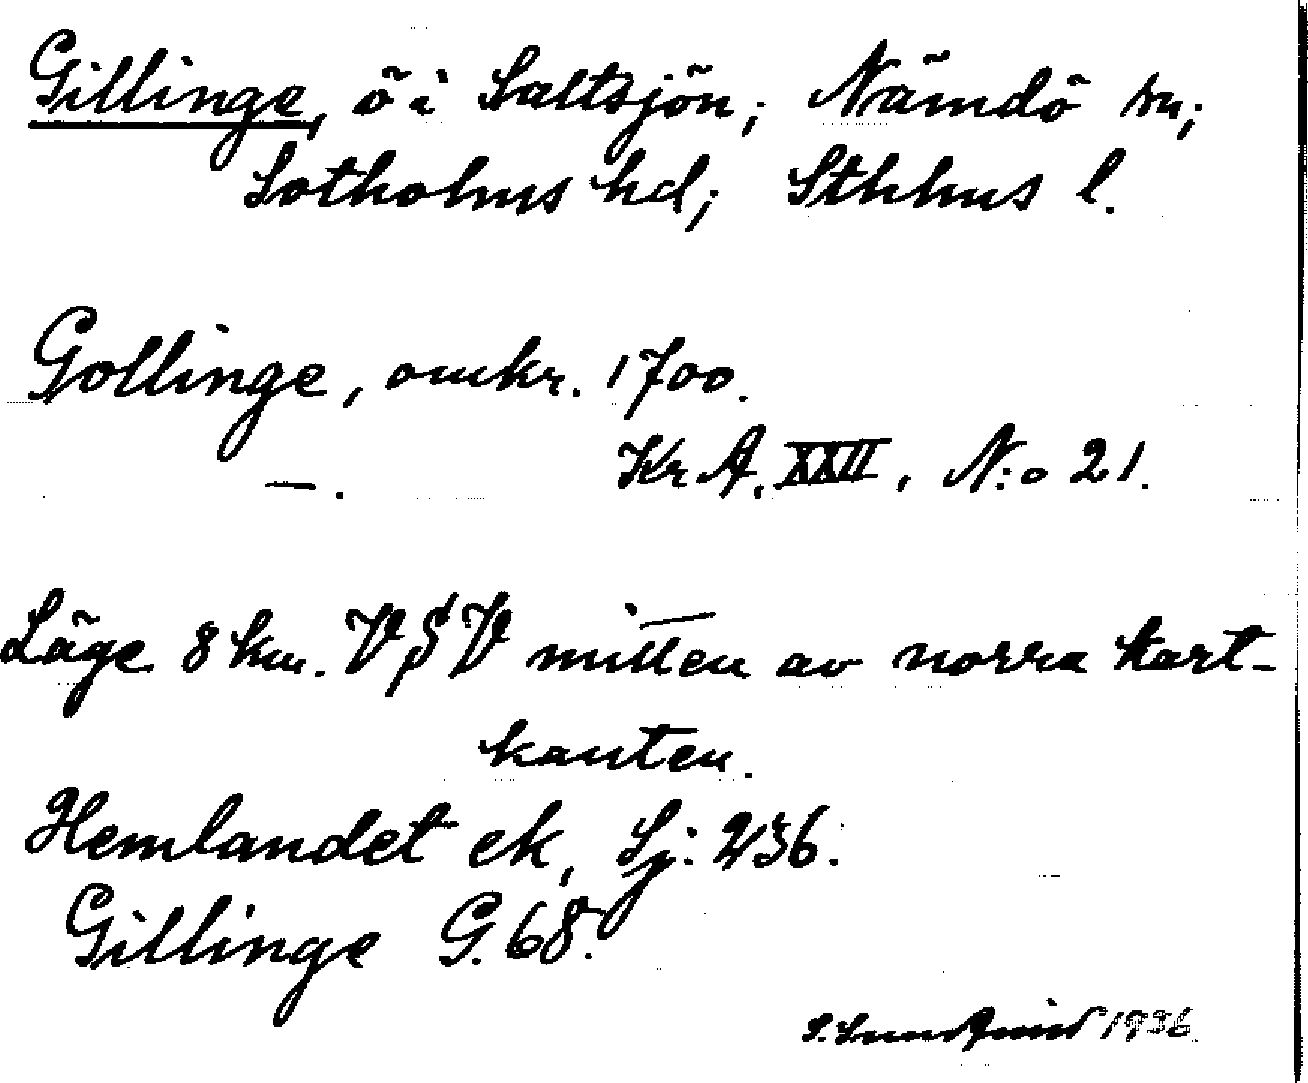 Gillinge, ö i Saltsjön; Nämdö sn;
Sotholms hd; Sthlms l.
Gollinge, omkr. 1700.
—. KrA. XXII, N:o 21.
Läge 8 km. VSV mitten av norra kart-
kanten.
Hemlandet ek, Sj: 236.
Gillinge G. 68.
1936